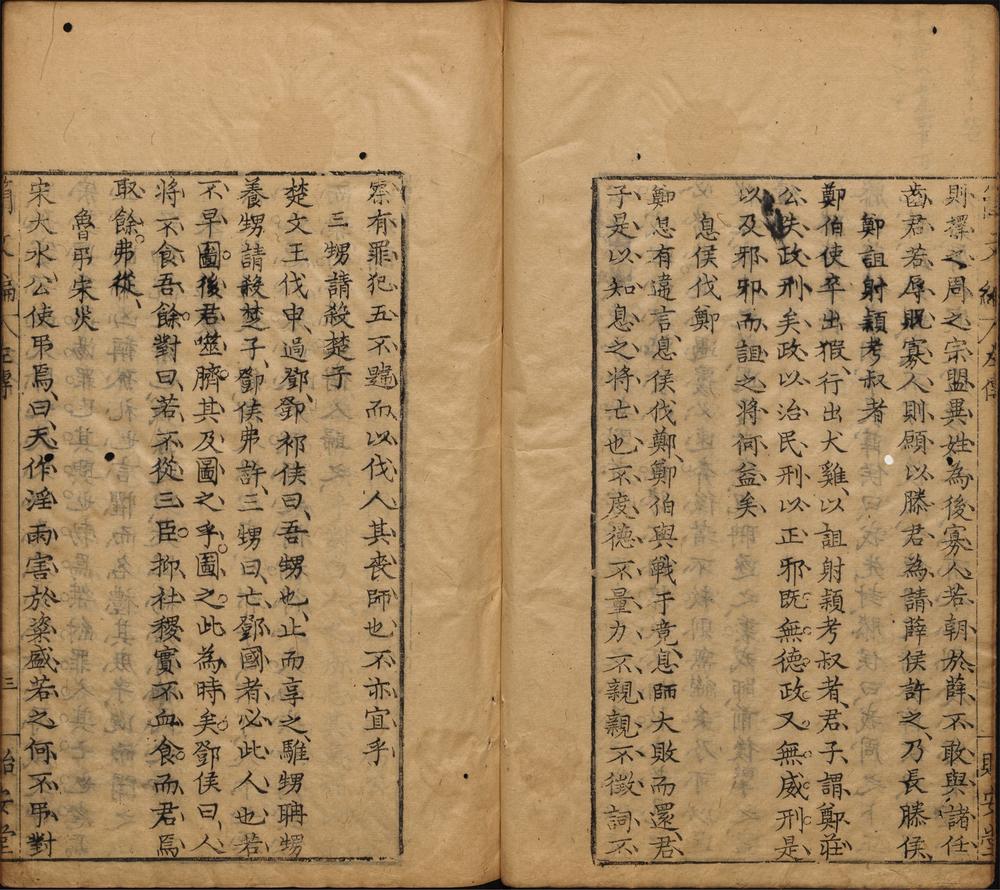 則擇之周之宗盟異姓為後寡人若朝於薛不敢與諸任
齒君若辱貺寡人則願以滕君為請薛侯許之乃長滕侯
鄭詛射穎考叔者
鄭伯使卒出豭行出犬雞以詛射穎考叔者君子謂鄭莊
公失政刑矣政以治民刑以正邪既無德政又無威刑是
以及邪邪而詛之將何益矣
息侯伐鄭
鄭息有違言息侯伐鄭鄭伯與戰于竟息師大敗而還君
子是以知息之將亡也不度德不量力不親親不徵詞不
察有罪犯五不韙而以伐人其喪師也不亦宜乎
三甥請殺楚子
楚文王伐申過鄧鄧祁侯曰吾甥也止而享之騅甥聃甥
養甥請殺楚子鄧侯弗許三甥曰亡鄧國者必此人也若
不早圖後君噬臍其及圖之乎圖之此為時矣鄧侯曰人
將不食吾餘對曰若不從三臣抑社稷實不血食而君焉
取餘弗從
魯弔宋災
宋大水公使弔焉曰天作淫雨害於粢盛若之何不弔對
三
怡安堂